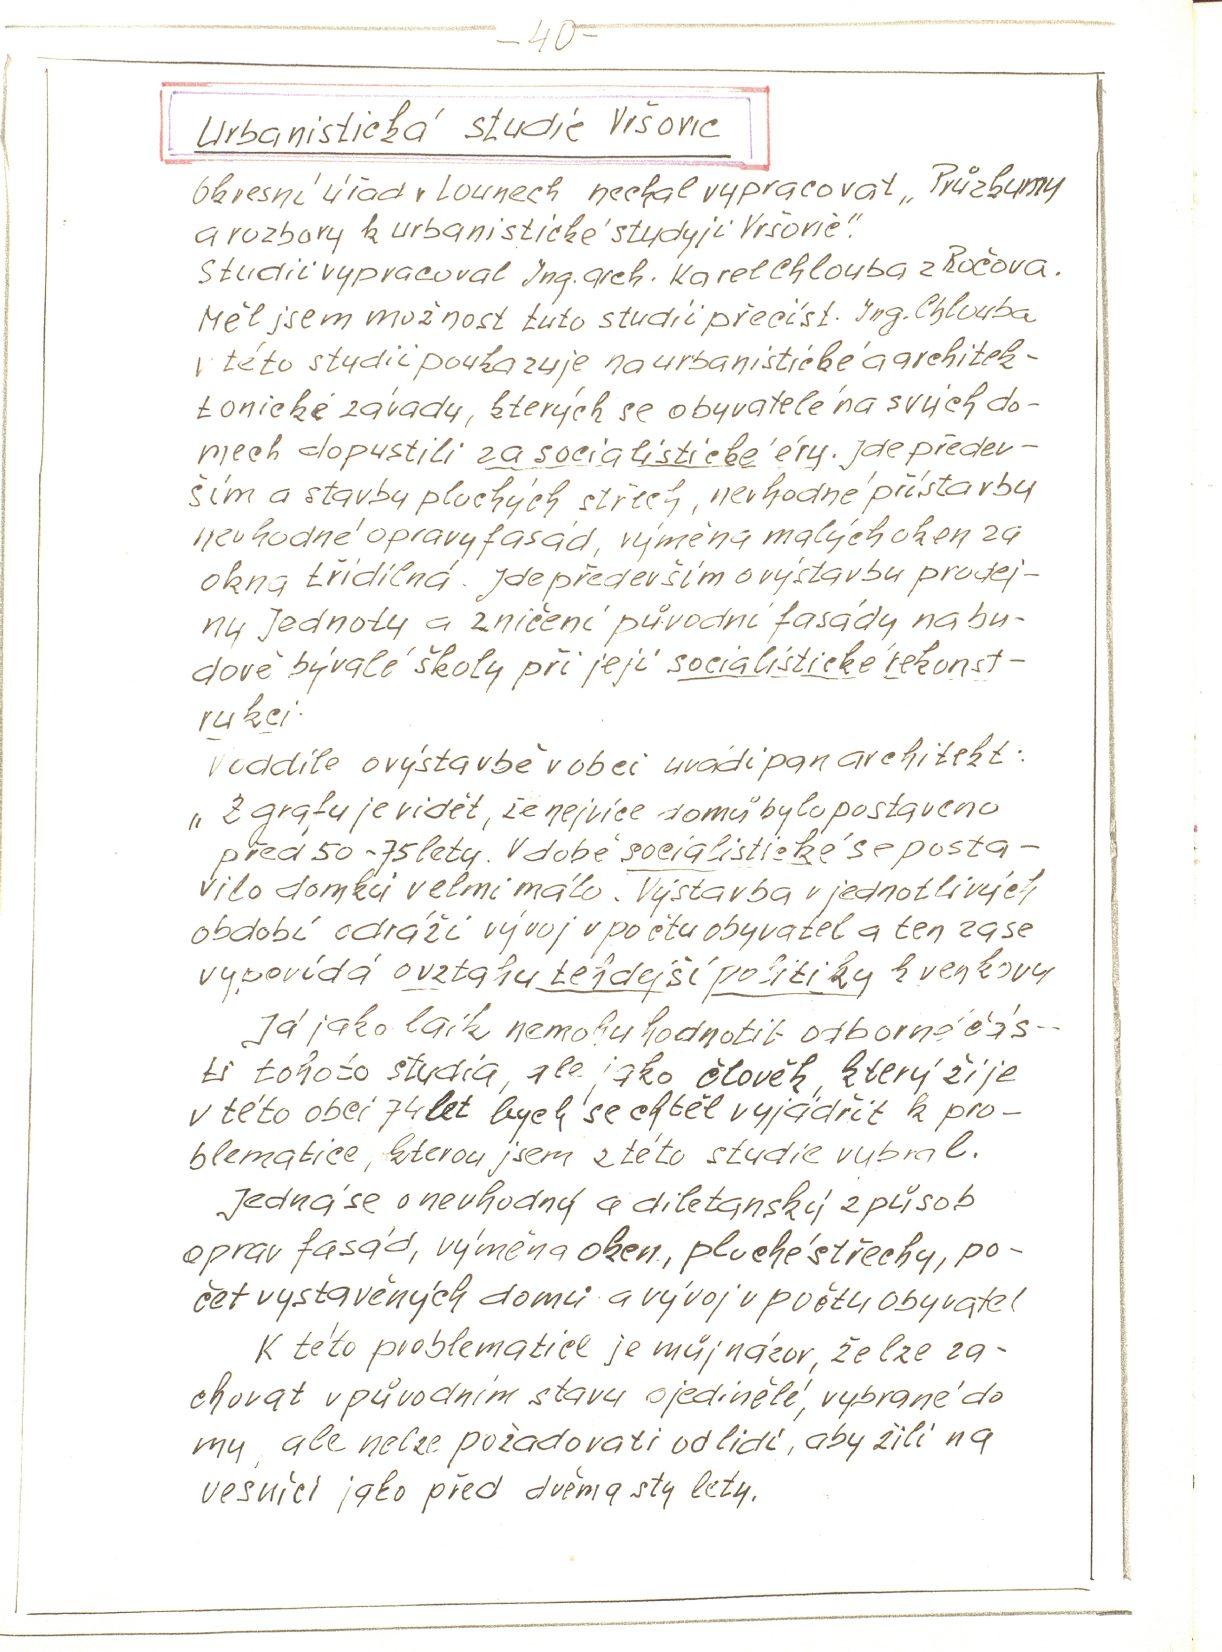 - 40 -
Urbanistická studie Vršovic
Okresní úřad v Lounech nechal vypracovat „Průzkumy
a rozbory k urbanistické studyji Vršovic".
Studii vypracoval Ing. arch. Karel Chlouba z Ročova.
Měl jsem možnost tuto studii přečíst. Ing. Chlouba
v této studii poukazuje na urbanistické a architek-
tonické závady, kterých se obyvatelé na svých do-
mech dopustili za socialistické éry. Jde předev-
ším a stavby plochých střech, nevhodné přístavby
nevhodné opravy fasád, výměna malých oken za
okna třídílná. Jde především o výstavbu prodej-
ny Jednoty a zničení původní fasády na bu-
dově bývalé školy při její socialistické rekonst-
rukci.
V oddíle o výstavbě v obci uvádí pan architekt:
„Z grafu je vidět, že nejvíce domů bylo postaveno
před 50-75 lety. V době socialistické se posta-
vilo domků velmi málo. Výstavba v jednotlivých
období odráží vývoj v počtu obyvatel a ten zase
vypovídá o vztahu tehdejší politiky k venkovu
Já jako laik nemohu hodnotit odborné čás-
ti tohoto studia, ale jako člověk, který žije
v této obci 74 let bych se chtěl vyjádřit k pro-
blematice, kterou jsem z této studie vybral.
Jedná se o nevhodný a diletanský způsob
oprav fasád, výměna oken, ploché střechy, po-
čet vystavěných domů a vývoj v počtu obyvatel
K této problematice je můj názor, že lze za-
chovat v původním stavu ojedinělé, vybrané do
my, ale nelze požadovati od lidí, aby žili na
vesnici jako před dvěma sty lety.